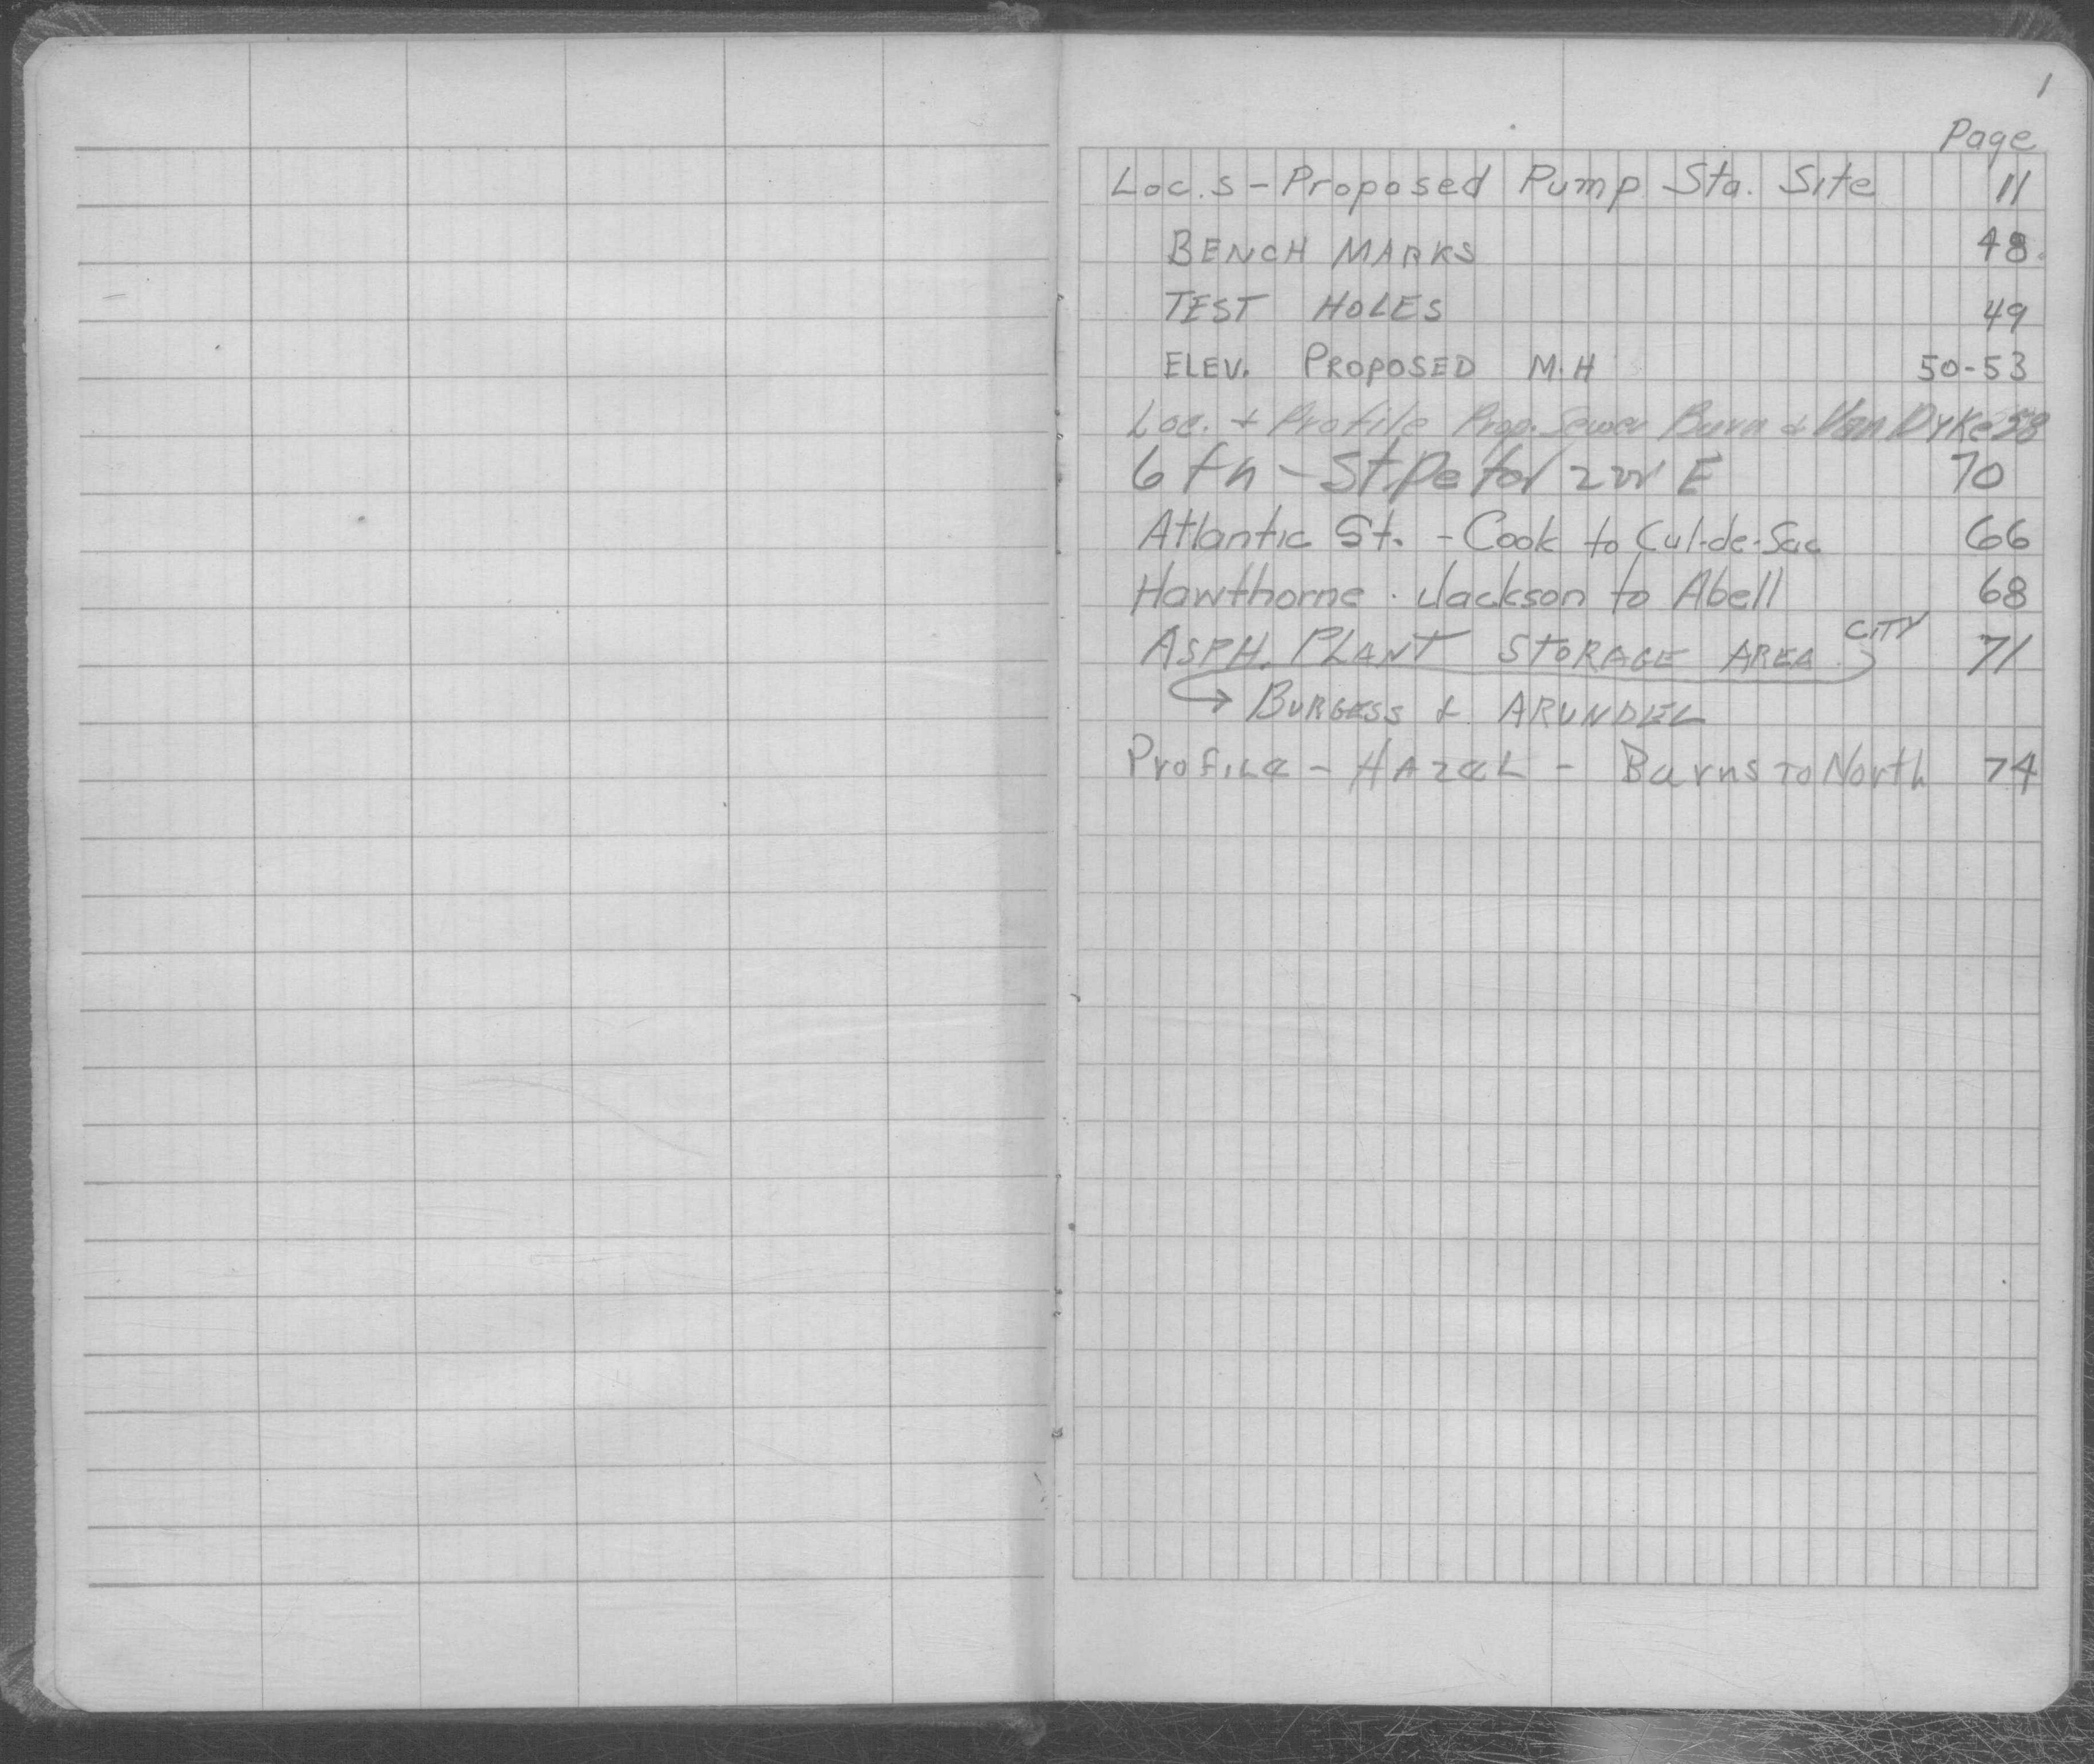 1
Page
Loc.s - Proposed Pump Sta. Site 11
BENCH MARKS 48
TEST HOLES 49
ELEV. PROPOSED M.H 50-53
Loc. + Profile Prop. Sewer & Van Dyke 58
6th - St Peter E 70
Atlantic St. - Cook to Cul-de-Sac 66
Hawthorne - Jackson to Abell 68
ASPH. PLANT STORAGE AREA CITY 71
BURGESS & ARUNDEL
Profile - Hazel - Burns to North 74